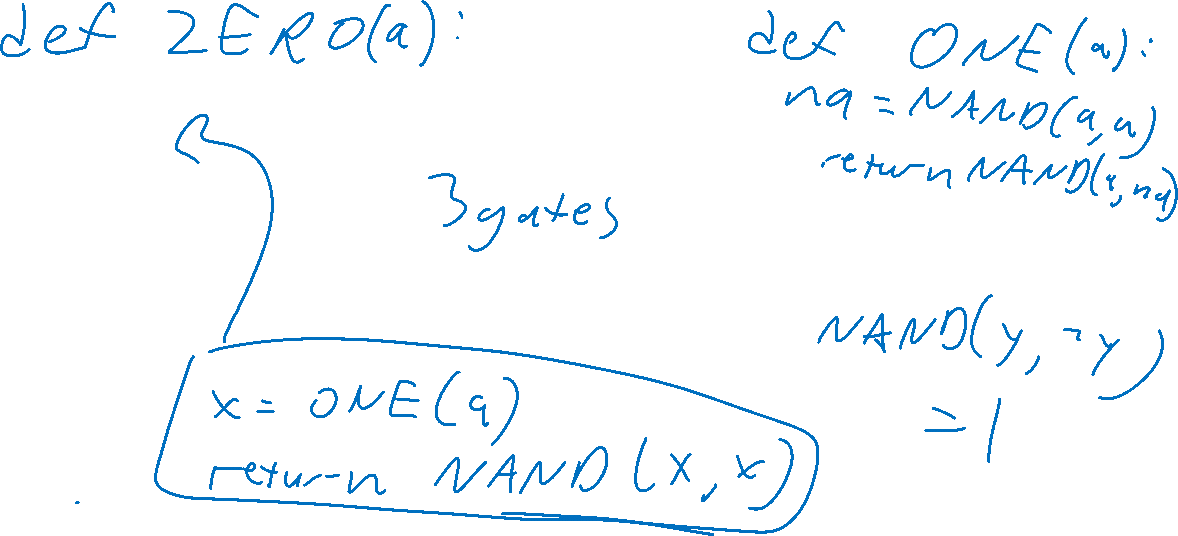 def ZERO(a):
3 gates
x = ONE(a)
return NAND(x, x)
def ONE(a):
na = NAND(a, a)
return NAND(a, na)
NAND(y, ¬y)
= 1